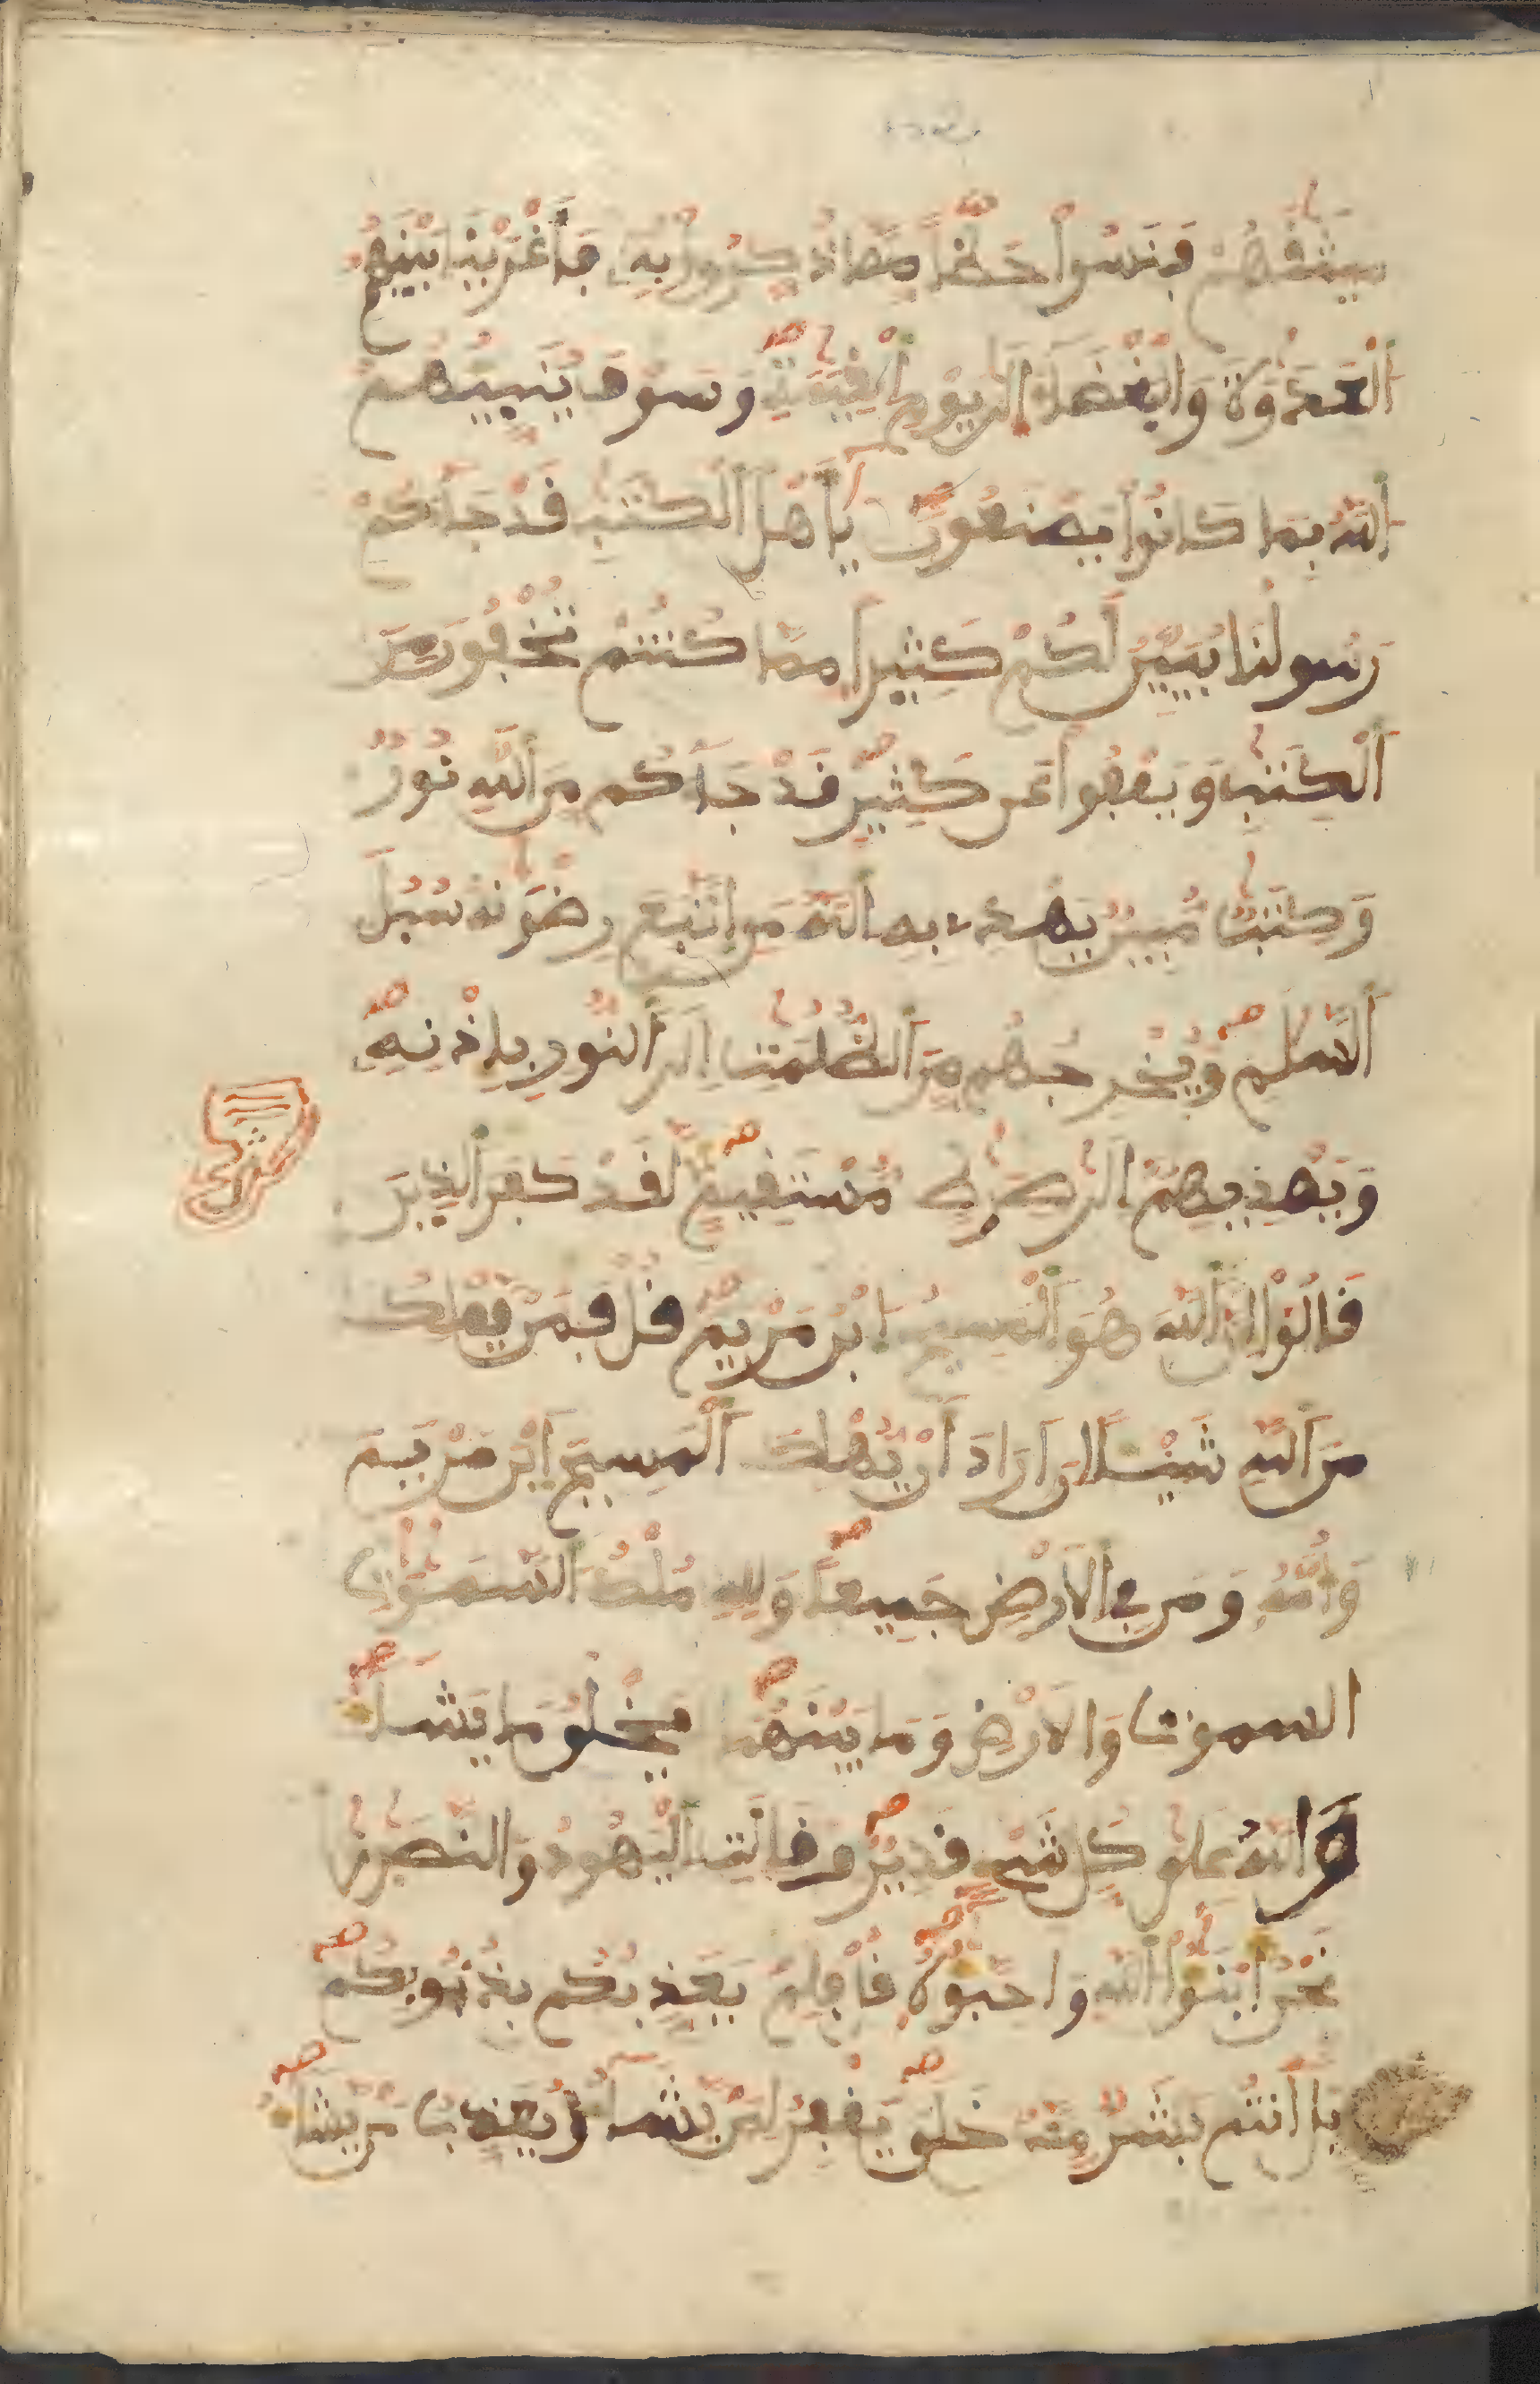 ميثٰقهم فنسوا حظا مما ذكروا به فأغرينا بينهم
العدٰوة والبغضاء الى يوم القيٰمة وسوف ينبيهم
الله بما كانوا يصنعون يأهل الكتٰب قد جاءكم
رسولنا يبين لكم كثيرا مما كنتم تخفون من
الكتٰب ويعفوا عن كثير قد جاءكم من الله نور
وكتٰب مبين يهدى به الله من اتبع رضوٰنه سبل
السلٰم ويخرجهم من الظلمٰت الى النور بإذنه
ويهديهم الى صرٰط مستقيم لقد كفر الذين
قالوا ان الله هو المسيح ابن مريم قل فمن يملك
من الله شيئا ان اراد ان يهلك المسيح ابن مريم
وامه ومن في الارض جميعا ولله ملك السمٰوٰت
السموت والارض وما بينهما يخلق ما يشاء
والله على كل شيء قدير وقالت اليهود والنصٰرى
نحن ابنٰوا الله واحبٰوه قل فلم يعذبكم بذنوبكم
بل انتم بشر ممن خلق يغفر لمن يشاء ويعذب من يشاء